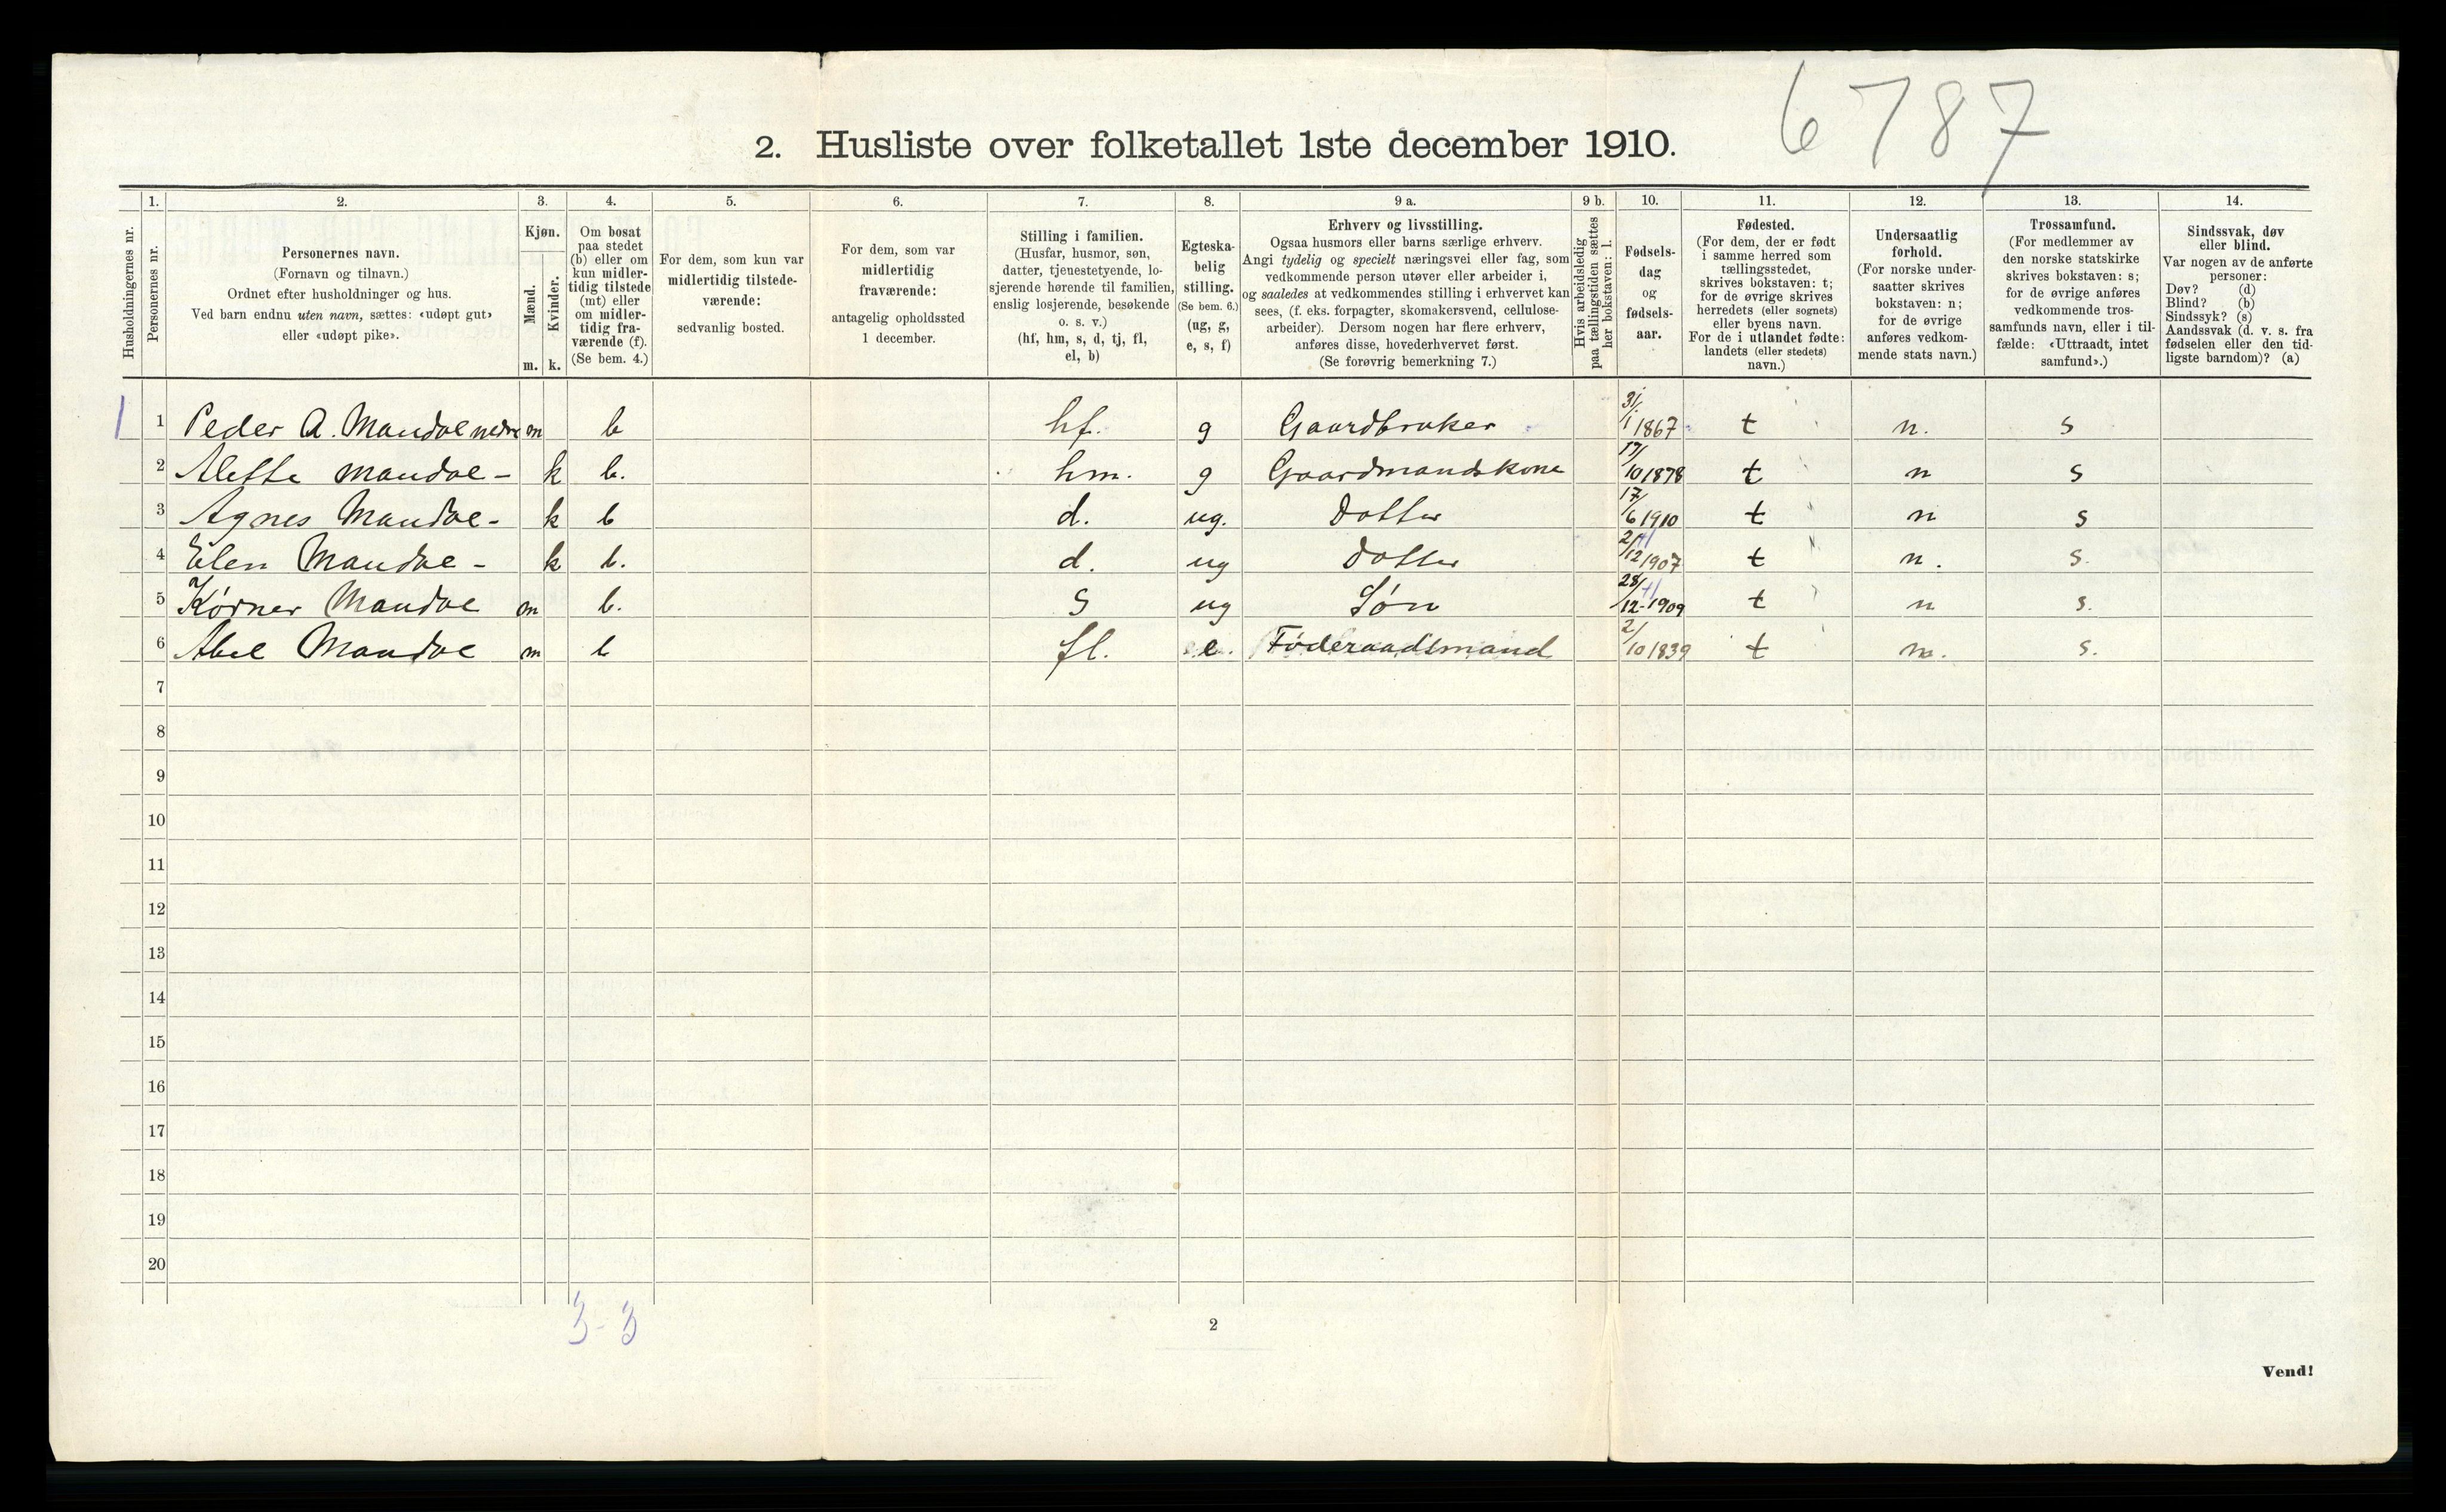 6787
2. Husliste over folketallet 1ste december 1910.
1. 2. 3. 4. 5. 6. 7. 8. 9 a. 9 b. 10. 11. 12. 13. 14.
Husholdningernes nr.
Personernes nr.
Personernes navn.
(Fornavn og tilnavn.)
Ordnet efter husholdninger og hus.
Ved barn endnu uten navn, sættes: «udøpt gut»
eller «udøpt pike».
Kjøn.
Mænd.
Kvinder.
m. k.
Om bosat
paa stedet
(b) eller om
kun midler-
tidig tilstede
(mt) eller
om midler-
tidig fra-
værende (f).
(Se bem. 4.)
For dem, som kun var
midlertidig tilstede-
værende:
sedvanlig bosted.
For dem, som var
midlertidig
fraværende:
antagelig opholdssted
1 december.
Stilling i familien.
(Husfar, husmor, søn,
datter, tjenestetyende, lo-
sjerende hørende til familien,
enslig losjerende, besøkende
o. s. v.)
(hf, hm, s, d, tj, fl,
el, b)
Egteska-
belig
stilling.
(Se bem. 6.)
(ug, g,
e, s, f)
Erhverv og livsstilling.
Ogsaa husmors eller barns særlige erhverv.
Angi tydelig og specielt næringsvei eller fag, som
vedkommende person utøver eller arbeider i,
og saaledes at vedkommendes stilling i erhvervet kan
sees, (f. eks. forpagter, skomakersvend, cellulose-
arbeider). Dersom nogen har flere erhverv,
anføres disse, hovederhvervet først.
(Se forøvrig bemerkning 7.)
Hvis arbeidsledig
paa tællingstiden sættes
her bokstaven: l.
Fødsels-
dag
og
fødsels-
aar.
Fødested.
(For dem, der er født
i samme herred som
tællingsstedet,
skrives bokstaven: t;
for de øvrige skrives
herredets (eller sognets)
eller byens navn.
For de i utlandet fødte:
landets (eller stedets)
navn.)
Undersaatlig
forhold.
(For norske under-
saatter skrives
bokstaven: n;
for de øvrige
anføres vedkom-
mende stats navn.)
Trossamfund.
(For medlemmer av
den norske statskirke
skrives bokstaven: s;
for de øvrige anføres
vedkommende tros-
samfunds navn, eller i til-
fælde: «Uttraadt, intet
samfund».)
Sindssvak, døv
eller blind.
Var nogen av de anførte
personer:
Døv? (d)
Blind? (b)
Sindssyk? (s)
Aandssvak (d. v. s. fra
fødselen eller den tid-
ligste barndom)? (a)
1 1 Peder A. Mandoe nedre m b hf. g Gaardbruker 31/1 1867 t n. s
2 Alette Mandoe - k b. hm. g Gaardmandskone 17/10 1878 t n s
3 Agnes Mandoe - k b d. ug. Dotter 17/6 1910 t n s
4 Elen Mandoe - k b. d. ug Dotter 2/12 1907 t n. s.
5 Kørner Mandoe m b. S ug Søn 28/12-1909 t n s.
6 Abel Mandoe m b fl. e. Føderaadsmand 2/10 1839 t n. s.
7
8
9
10
11
12
13
14
15
16
17
18
19
20
3-3
2
Vend!